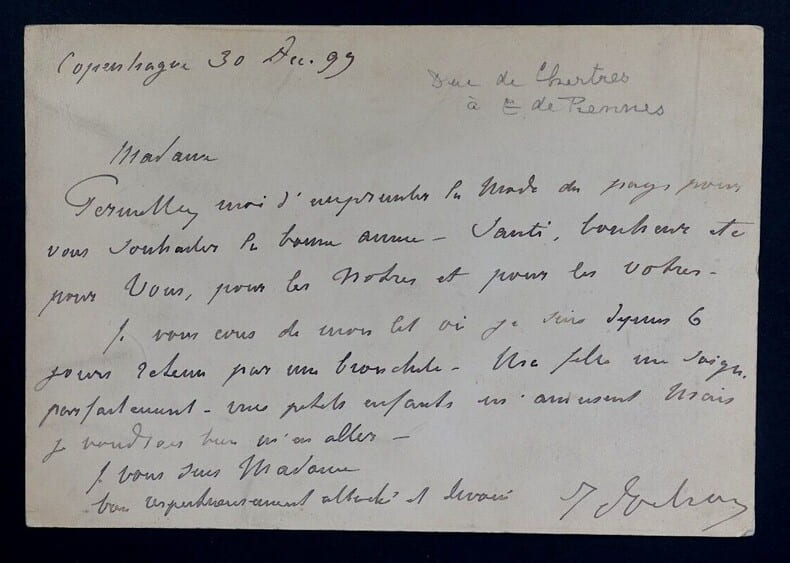 Copenhague 30 Dec. 99
Duc de Chartres
à de Rennes
Madame
Permettez moi d'emprunter la Mode du pays pour
vous souhaiter la bonne année - Santé, bonheur etc
pour Vous, pour les Notres et pour les votres -
Je vous écris de mon lit où je suis depuis 6
jours retenu par une bronchite - Ma fille me soigne
parfaitement - mes petits enfants m'amusent Mais
je voudrais bien m'en aller -
Je vous suis Madame
bien respectueusement attaché et dévoué